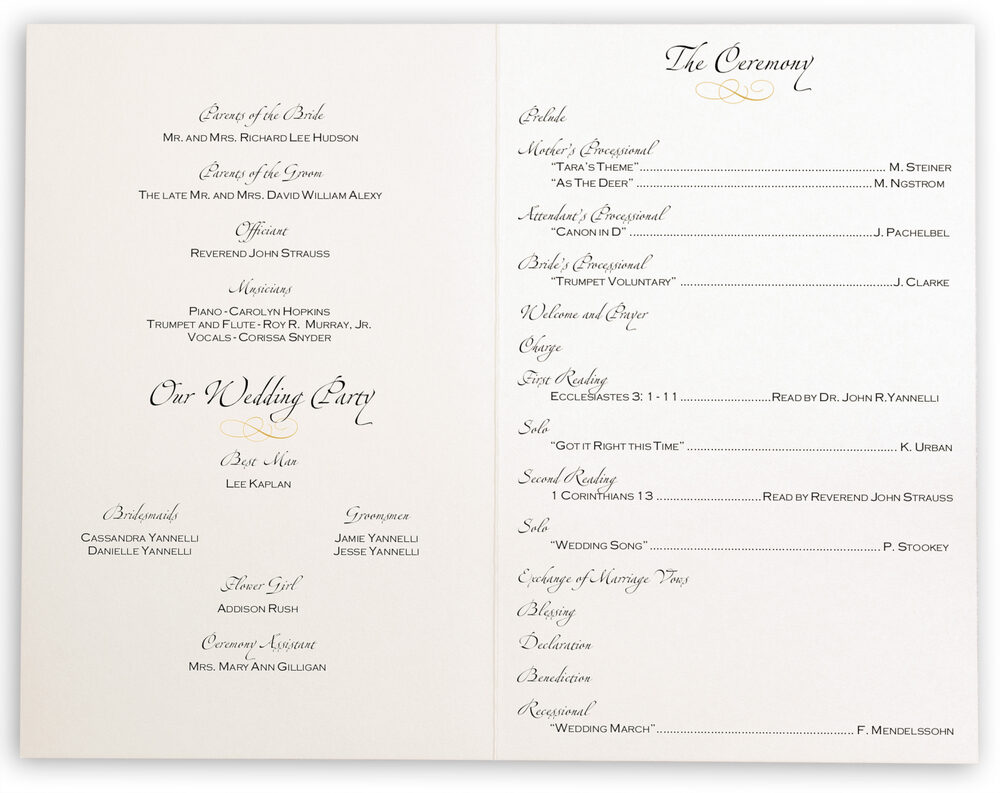 Parents of the Bride
Mr. and Mrs. Richard Lee Hudson
Parents of the Groom
The late Mr. and Mrs. David William Alexy
Officiant
Reverend John Strauss
Musicians
Piano - Carolyn Hopkins
Trumpet and Flute - Roy R. Murray, Jr.
Vocals - Corissa Snyder
Our Wedding Party
Best Man
Lee Kaplan
Bridesmaids
Cassandra Yannelli
Danielle Yannelli
Groomsmen
Jamie Yannelli
Jesse Yannelli
Flower Girl
Addison Rush
Ceremony Assistant
Mrs. Mary Ann Gilligan
The Ceremony
Prelude
Mother's Processional
"Tara's Theme"........................ M. Steiner
"As The Deer" ........................ M. Ngstrom
Attendant's Processional
"Canon in D" ........................ J. Pachelbel
Bride's Processional
"Trumpet Voluntary" ........................ J. Clarke
Welcome and Prayer
Charge
First Reading
Ecclesiastes 3: 1 - 11 ........................ Read by Dr. John R.Yannelli
Solo
"Got it Right this Time" ........................ K. Urban
Second Reading
1 Corinthians 13 ........................ Read by Reverend John Strauss
Solo
"Wedding Song"........................ P. Stookey
Exchange of Marriage Vows
Blessing
Declaration
Benediction
Recessional
"Wedding March"........................ F. Mendelssohn